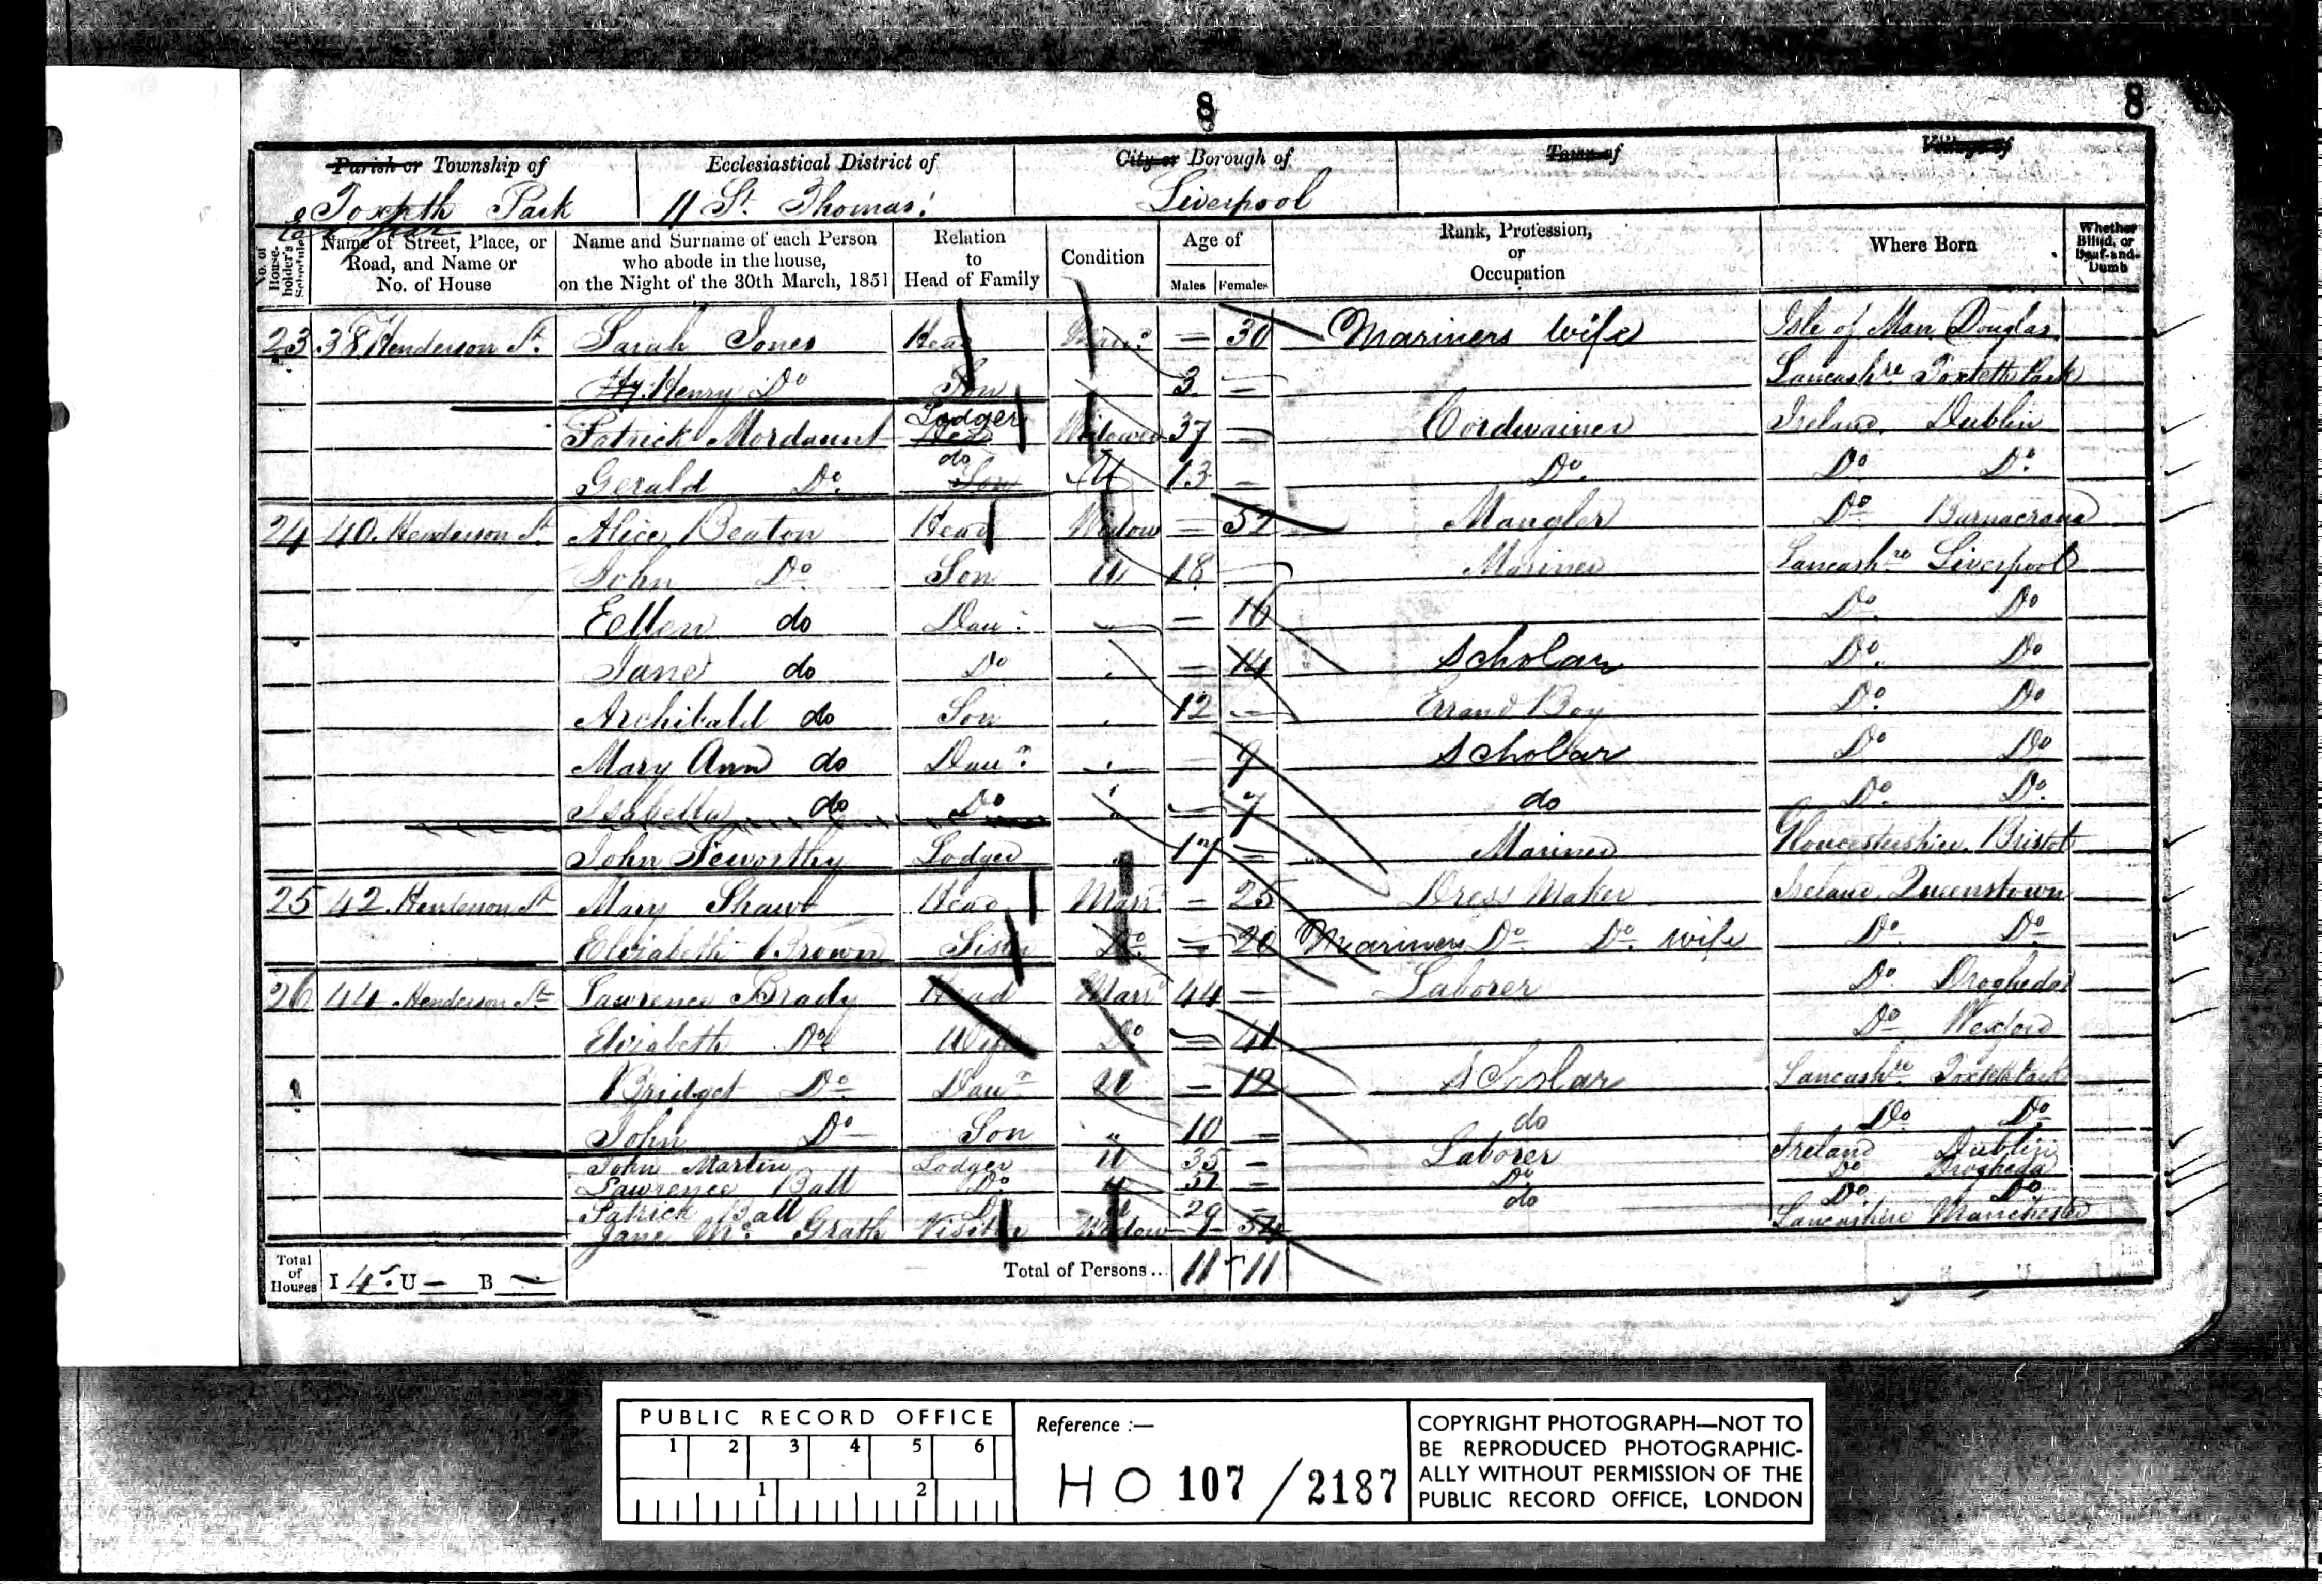 8
8
Parish or Township of Ecclesiastical District of City or Borough of Town of Village of
Toxteth Park St. Thomas' Liverpool
No. of House-holder's Schedule Name of Street, Place, or Road, and Name or No. of House Name and Surname of each Person who abode in the house, on the Night of the 30th March, 1851 Relation to Head of Family Condition Age of Males Females Rank, Profession, or Occupation Where Born Whether Blind, or Deaf-and-Dumb
23 38 Henderson St. Sarah Jones Head Marr. — 30 Mariners Wife Isle of Man Douglas
Hy. Henry Do Son 3 — Lancashre Toxteth Park
Patrick Mordaunt Lodger Widower 37 — Cordwainer Ireland Dublin
Gerald Do. do Son U 13 — Do. Do Do.
24 40. Henderson St Alice Beaton Head Widow — 52 Mangler Do
John Do Son U 18 — Mariner Lancashre Liverpool
Ellen do Dau. — 16 Do. Do
Jane do Do — 14 Scholar Do. Do
Archibald do Son 12 — Errand Boy Do. Do
Mary Ann do Daur. — 9 Scholar Do Do
Isabella do Do — 7 do Do. Do.
John Lodger 17 — Mariner Gloucestershire. Bristol
25 42. Henderson St Mary Shaw Head Marr — 25 Dress Maker Ireland. Queenstown
Elizabeth Brown Sister Do. — 20 Mariners Do Do. wife Do. Do.
26 44 Henderson St Lawrence Brady Head Marr 44 — Laborer Do. Drogheda
Elizabeth Do. Wife Do — 41 Do Wexford
Bridget Do Daur U — 12 Scholar Lancashre Toxteth Park
John Do Son „ 10 — do Do Do
John Martin Lodger U 35 — Laborer Ireland Dublin
Lawrence Ball Do. U — Do Do Drogheda
Patrick Ball Do U 29 — do Do Do
Jane Mc. Grath Visitor Widow — 54 Lancashire Manchester
Total of Houses I 4 U — B — Total of Persons... 11 11
PUBLIC RECORD OFFICE
1 2 3 4 5 6
1 2
Reference :—
HO 107 / 2187
COPYRIGHT PHOTOGRAPH—NOT TO
BE REPRODUCED PHOTOGRAPHIC-
ALLY WITHOUT PERMISSION OF THE
PUBLIC RECORD OFFICE, LONDON